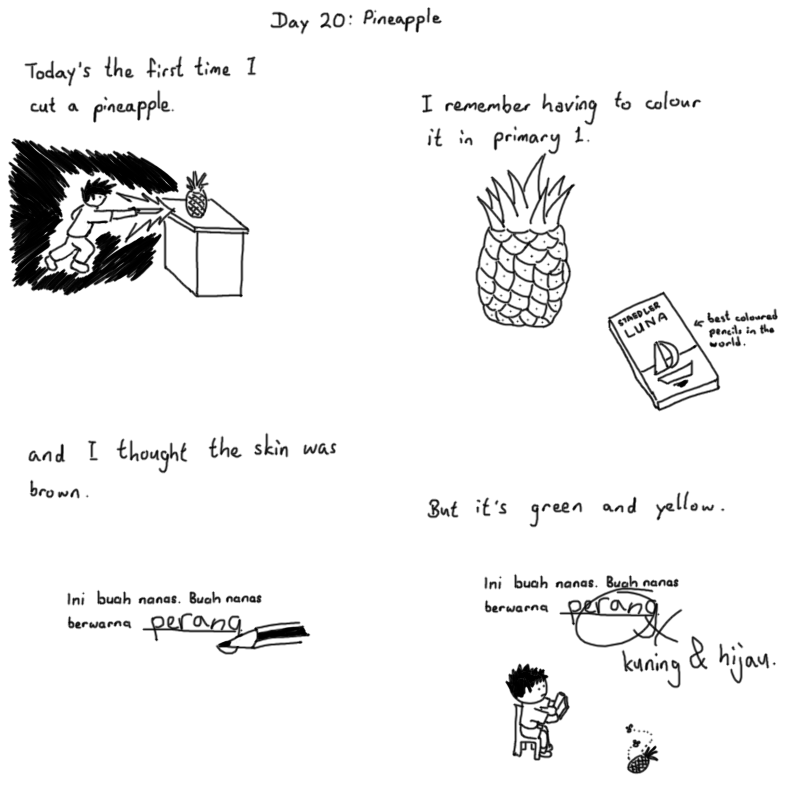 Day 20: Pineapple
Today's the first time I
cut a pineapple.
I remember having to colour
it in primary 1.
STAEDLER
LUNA
best coloured
pencils in the
world.
and I thought the skin was
brown.
Ini buah nanas. Buah nanas
berwarna perang
But it's green and yellow.
Ini buah nanas. Buah nanas
berwarna perang
kuning & hijau.